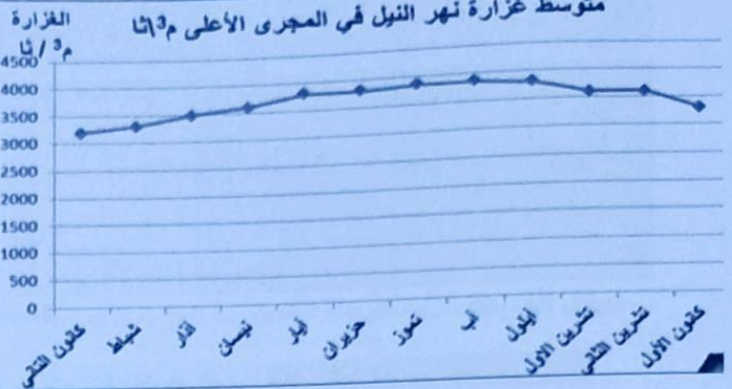 متوسط غزارة نهر النيل في المجرى الأعلى م3\ثا
الغزارة
م3 / ثا
4500
4000
3500
3000
2500
2000
1500
1000
500
0
كانون الثاني
شباط
اذار
نيسان
أيار
حزيران
تموز
آب
أيلول
تشرين الاول
تشرين الثاني
كانون الأول